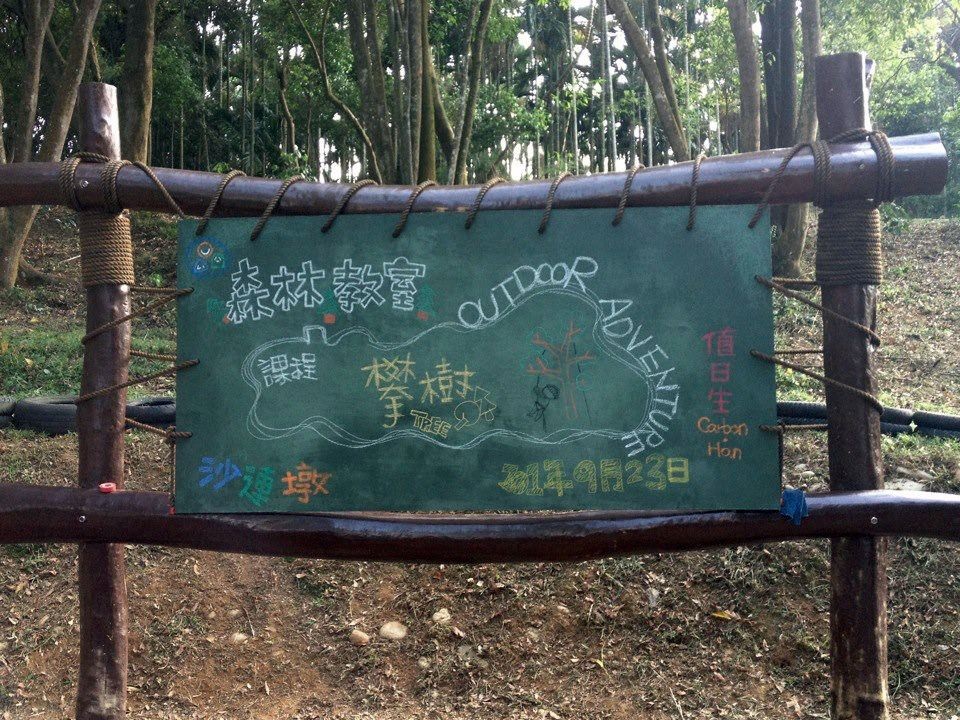 森林教室
OUTDOOR ADVENTURE
課程
攀樹
TREE
值日生
Carbon
Han
沙連墩
年9月23日